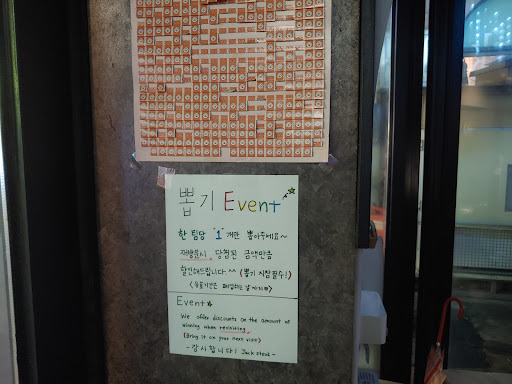 뽑기 Event
한 팀당 "1"개만 뽑아주세요~
재방문시, 당첨된 금액만큼
할인해드립니다.^^ (뽑기 지참필수!)
Event
We offer discounts on the amount of
winning when revisiting.
(Bring it on your next visit)
-감사합니다! Jack steak-